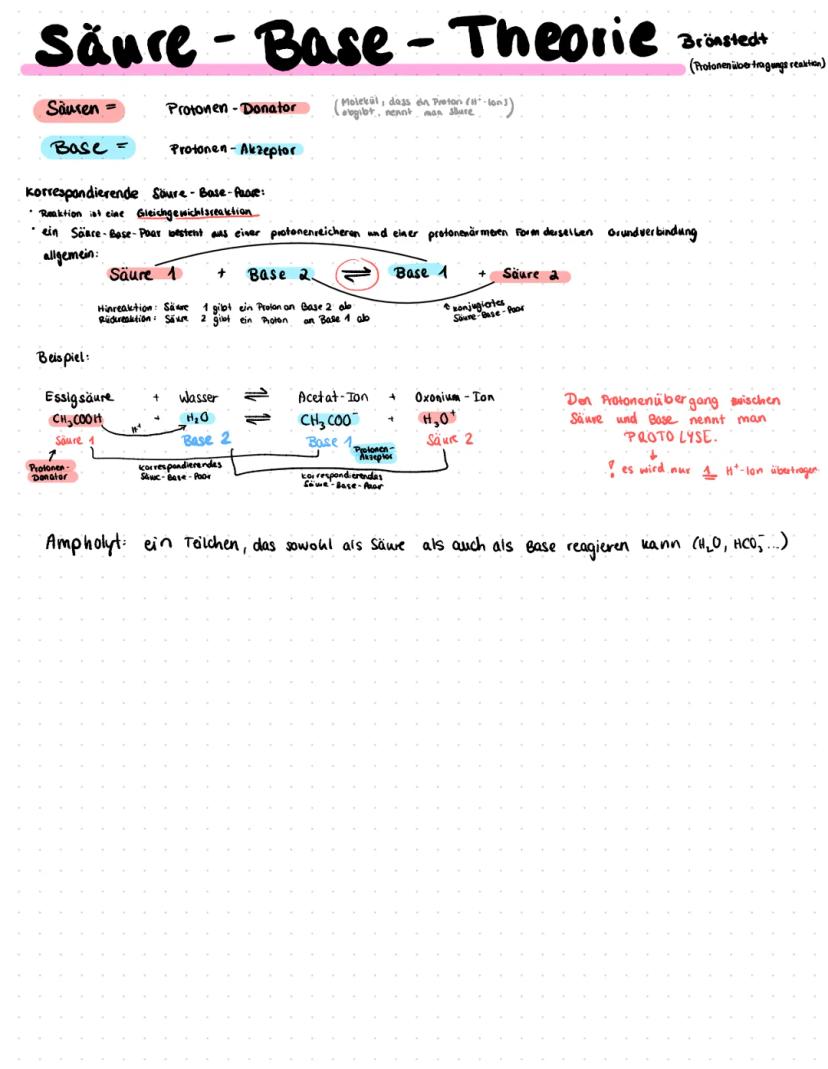 Säure - Base - Theorie Brönstedt
(Protonenübertragungsreaktion)
Säuren = Protonen - Donator (Molekül, dass ein Proton (H⁺-Ions)
abgibt, nennt man Säure)
Base = Protonen - Akzeptor
Korrespondierende Säure - Base - Paare:
• Reaktion ist eine Gleichgewichtsreaktion
• ein Säure-Base-Paar besteht aus einer protonenreicheren und einer protonenärmeren Form derselben Grundverbindung
allgemein:
Säure 1 + Base 2 ⇌ Base 1 + Säure 2
Hinreaktion: Säure 1 gibt ein Proton an Base 2 ab
Rückreaktion: Säure 2 gibt ein Proton an Base 1 ab
↑ konjugiertes
Säure-Base-Paar
Beispiel:
Essigsäure + Wasser ⇌ Acetat-Ion + Oxonium-Ion
CH₃COOH + H₂O ⇌ CH₃COO⁻ + H₃O⁺
H⁺
Säure 1 Base 2 Base 1 Säure 2
Protonen-
Donator
Protonen-
Akzeptor
korrespondierendes
Säure-Base-Paar
korrespondierendes
Säure-Base-Paar
Den Protonenübergang zwischen
Säure und Base nennt man
PROTOLYSE.
↓
! es wird nur 1 H⁺-Ion übertragen
Ampholyt: ein Teilchen, das sowohl als Säure als auch als Base reagieren kann (H₂O, HCO₃⁻...)